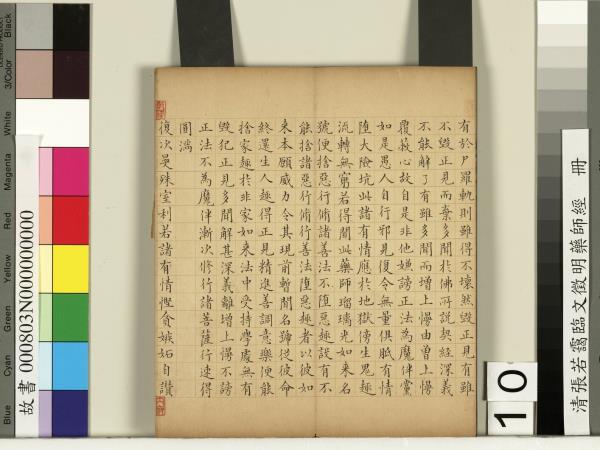 有於尸羅軌則雖得不壞然毀正見有雖
不毀正見而棄多聞於佛所說契經深義
不能解了有雖多聞而增上慢由曾上慢
覆蔽心故自是非他嫌謗正法為魔伴黨
如是愚人自行邪見復令無量俱胝有情
墮大險坑此諸有情應於地獄傍生鬼趣
流轉無窮若得聞此藥師瑠璃光如來名
號便捨惡行修諸善法不墮惡趣設有不
能捨諸惡行修行善法墮惡趣者以彼如
來本願威力令其現前暫聞名號從彼命
終還生人趣得正見精進善調意樂便能
捨家趣於非家如來法中受持學處無有
毀犯正見多聞解甚深義離增上慢不謗
正法不為魔伴漸次修行諸菩薩行速得
圓滿
復次曼殊室利若諸有情慳貪嫉妬自讚
清張若靄臨文徵明藥師經 冊
10
故書 000803N000000000
Black
3/Color
White
Magenta
Red
Yellow
Green
Cyan
Blue